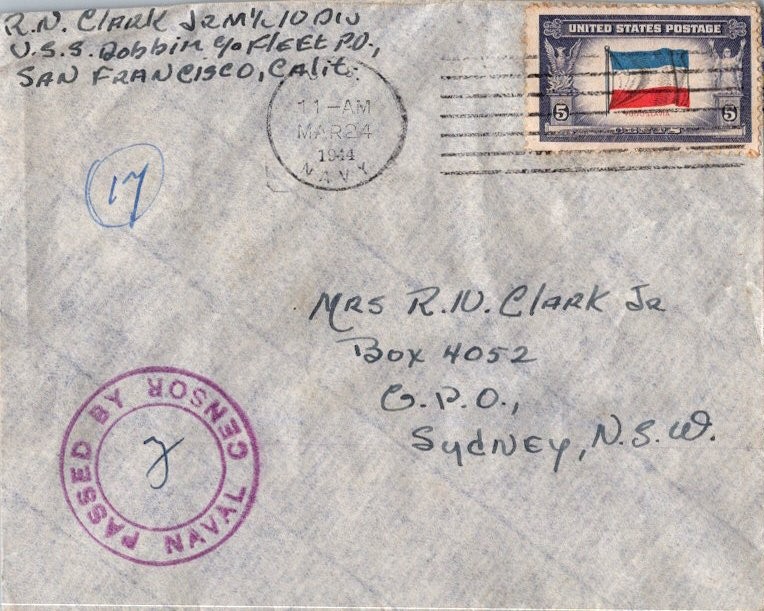 R.N. Clark Jr M1/c 10 Div
U.S.S. Dobbin c/o Fleet P.O.,
San Francisco, Calif.
UNITED STATES POSTAGE
5 5
11-AM
MAR 24
1944
NAVY
17
Mrs R.N. Clark Jr
Box 4052
G.P.O.,
Sydney, N.S.W.
PASSED BY NAVAL CENSOR